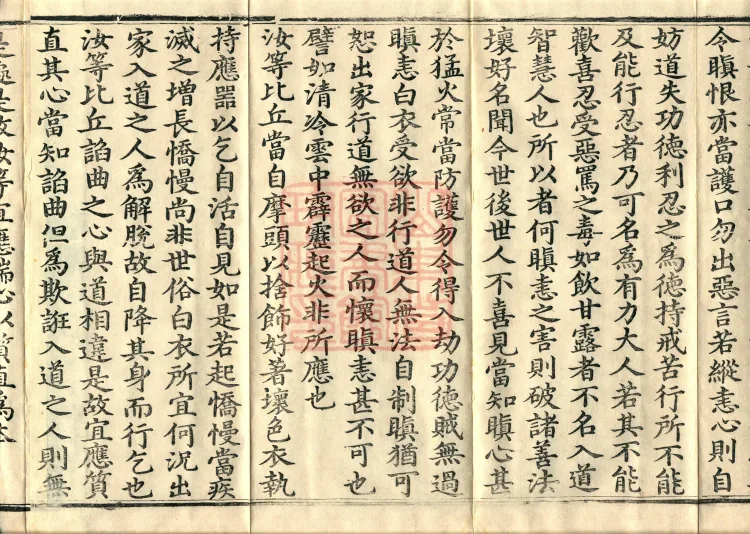 令瞋恨亦當護口勿出惡言若縱恚心則自
妨道失功德利忍之為德持戒苦行所不能
及能行忍者乃可名為有力大人若其不能
歡喜忍受惡罵之毒如飲甘露者不名入道
智慧人也所以者何瞋恚之害則破諸善法
壞好名聞今世後世人不喜見當知瞋心甚
於猛火常當防護勿令得入劫功德賊無過
瞋恚白衣受欲非行道人無法自制瞋猶可
恕出家行道無欲之人而懷瞋恚甚不可也
譬如清冷雲中霹靂起火非所應也
汝等比丘當自摩頭以捨飾好著壞色衣執
持應器以乞自活自見如是若起憍慢當疾
滅之增長憍慢尚非世俗白衣所宜何況出
家入道之人為解脫故自降其身而行乞也
汝等比丘諂曲之心與道相違是故宜應質
直其心當知諂曲但為欺誑入道之人則無
是處是故汝等宜應端心以質直為本